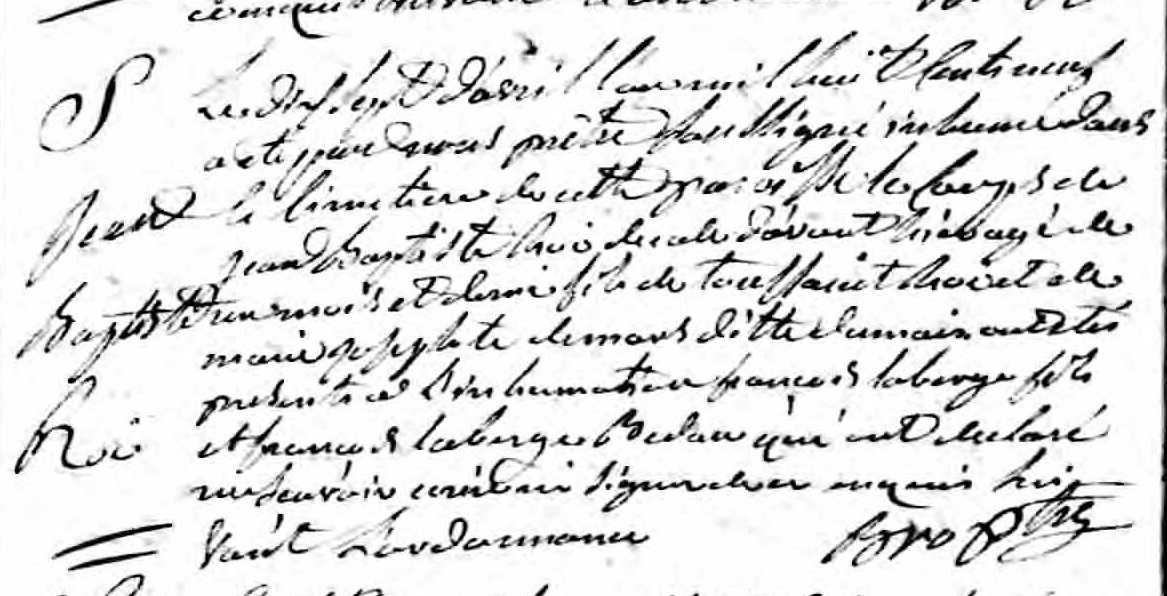 S
Jean
Baptiste
Roi
Le dix sept d'avril l'an mil huit cents neuf
a été par nous prêtre soussigné inhumé dans
le cimetiere de cette paroisse le corps de
jean Baptiste Roi decedé d'avant hier agé de
un mois et demi fils de toussaint Roi et de
marie josephte demars ditte dumain ont etés
presents a l'inhumation françois laberge fils
et françois laberge Bedau qui ont declaré
ne sçavoir ecrire ni signer de ce enquis sui
vant L'ordonnance
Bro ptre